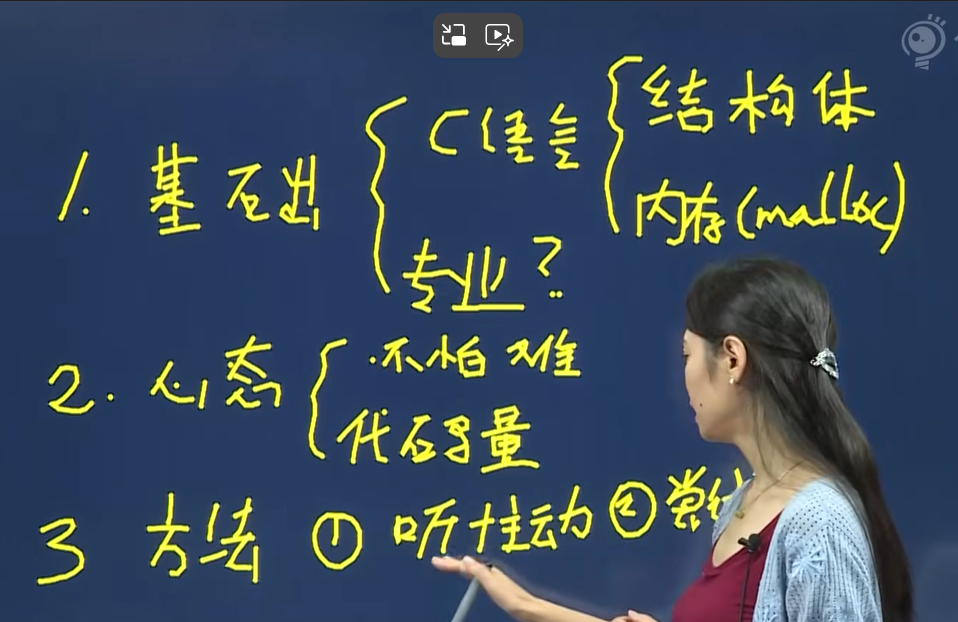 1. 基础 { C语言 { 结构体
内存(malloc)
专业?
2. 心态 { ·不怕难
代码量
3 方法 ① 听+主动 ②